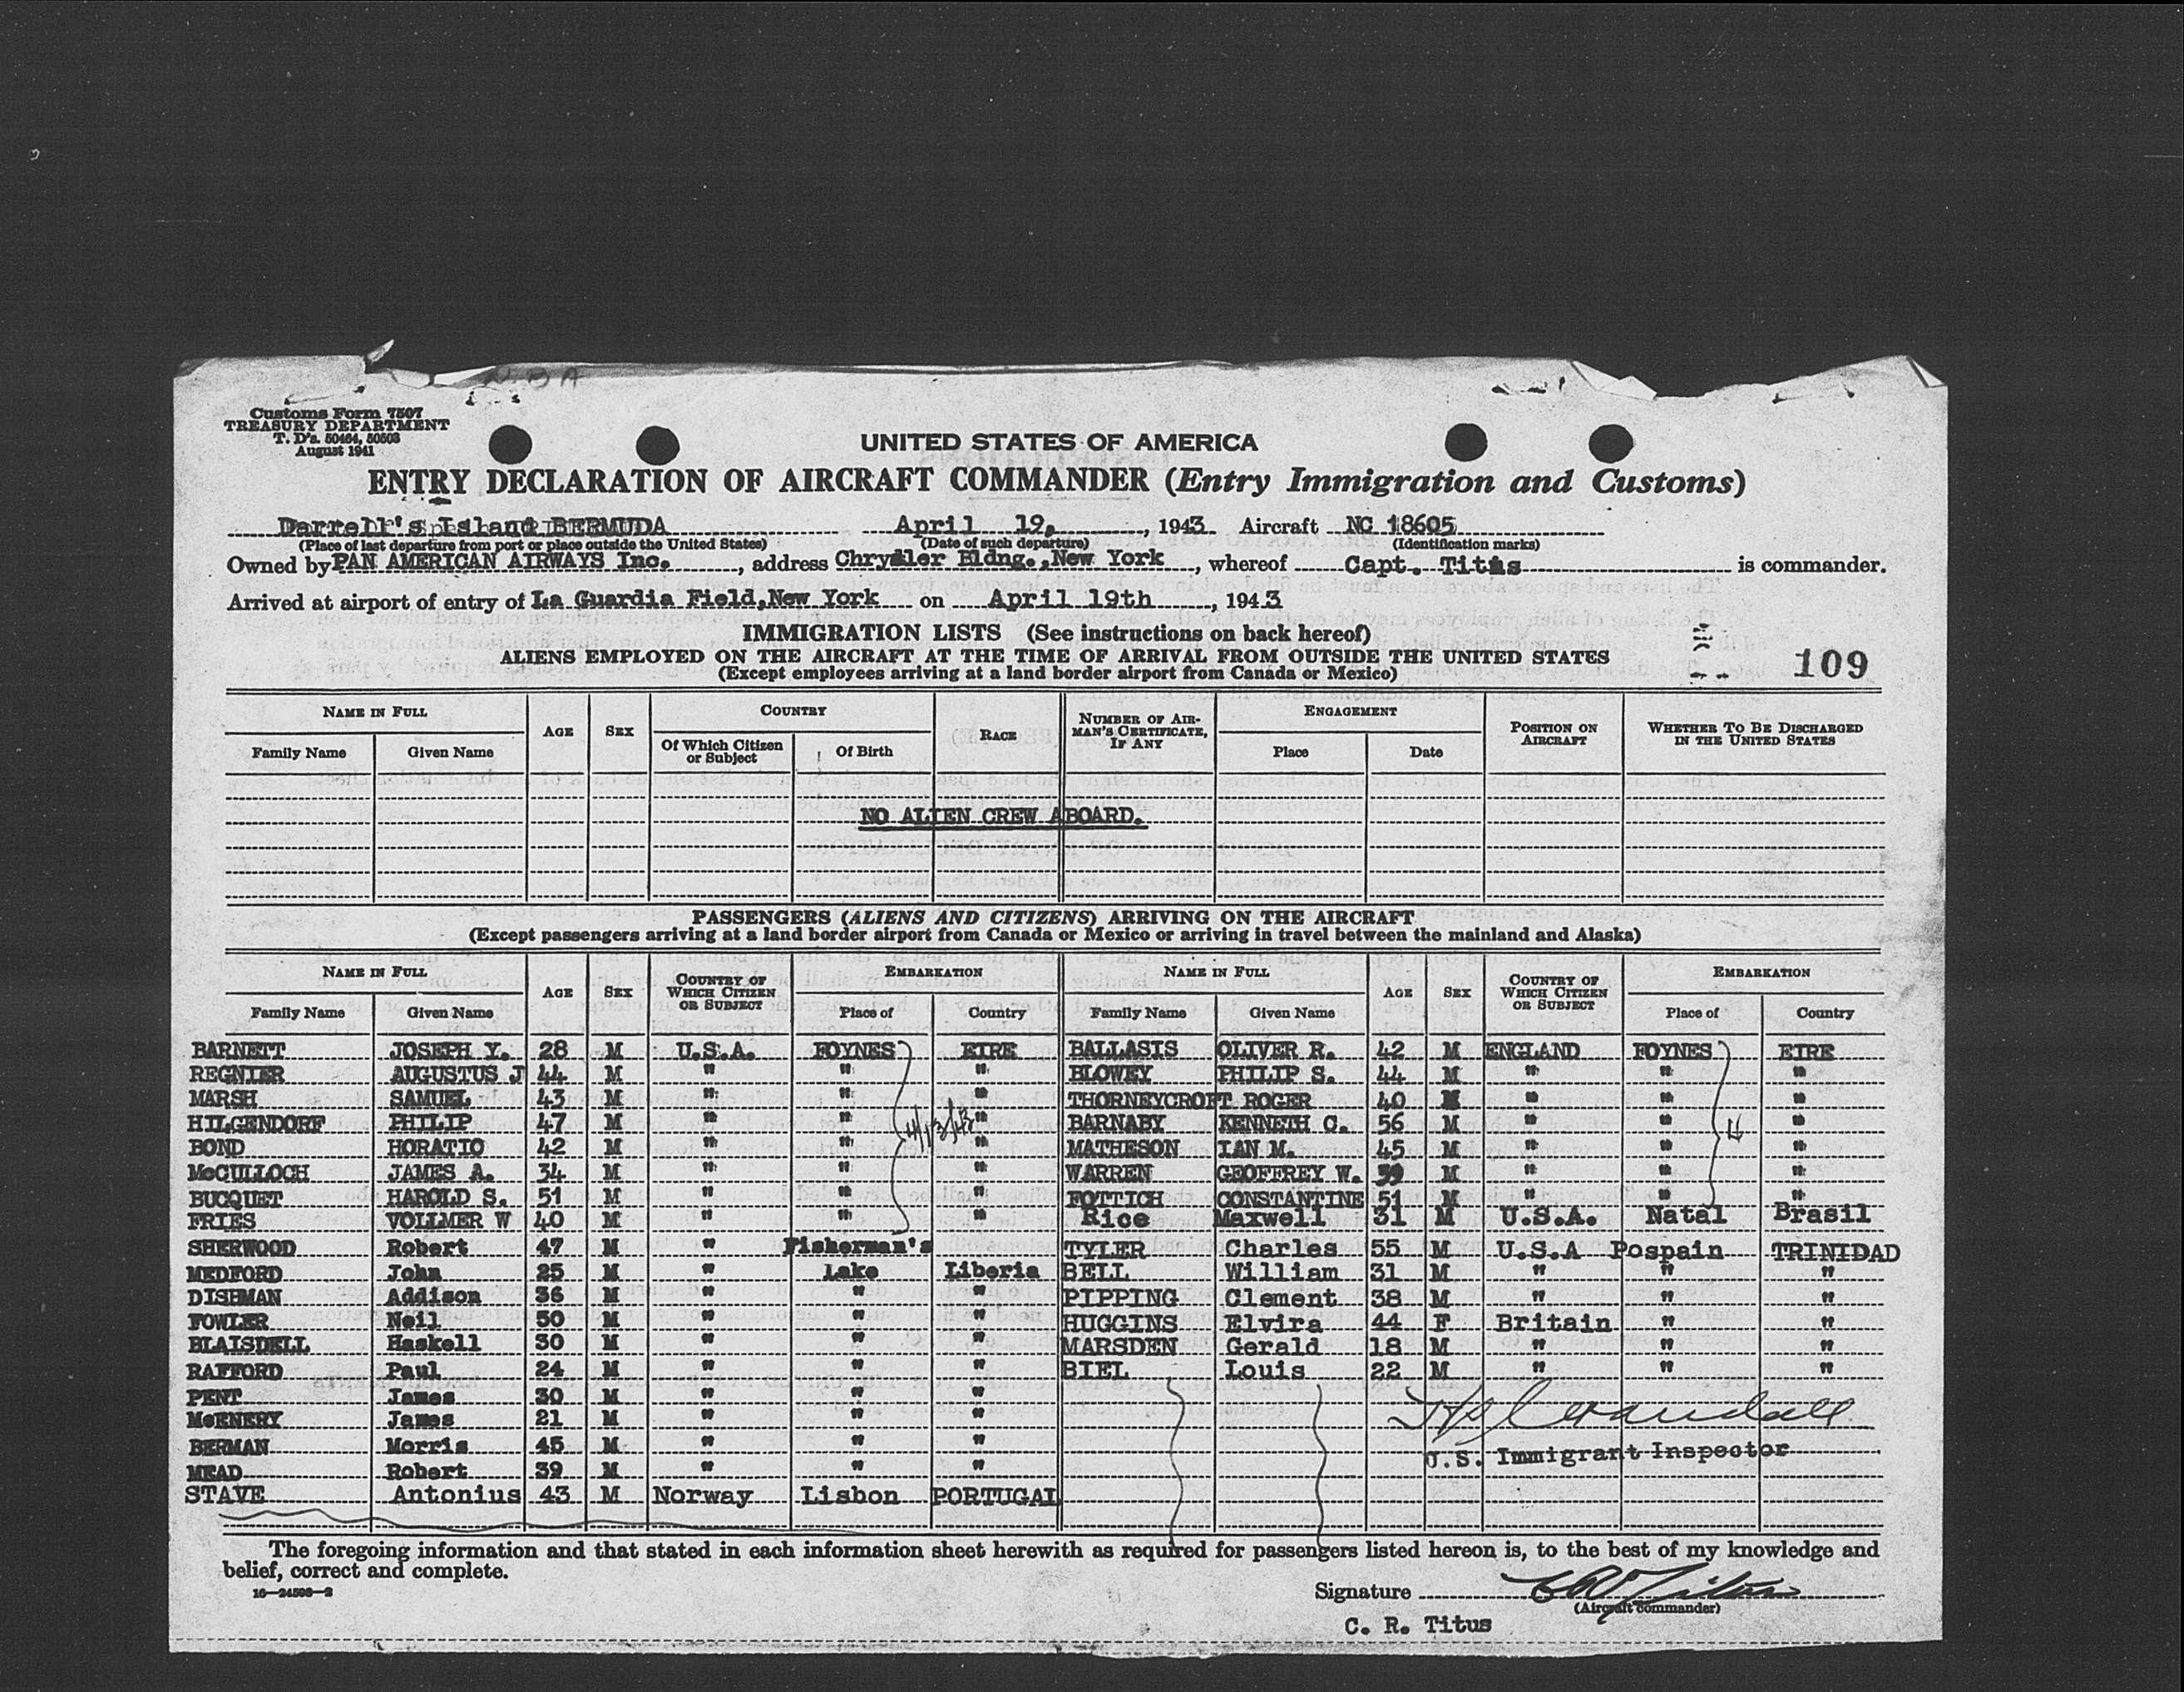 Customs Form 7507
TREASURY DEPARTMENT
T. D's. 50464, 50503
August 1941
UNITED STATES OF AMERICA
ENTRY DECLARATION OF AIRCRAFT COMMANDER (Entry Immigration and Customs)
Darrell's Island BERMUDA April 19, 1943 Aircraft NC 18605
(Place of last departure from port or place outside the United States) (Date of such departure) (Identification marks)
Owned by PAN AMERICAN AIRWAYS Inc. , address Chrysler Bldng., New York , whereof Capt. Titus is commander.
Arrived at airport of entry of La Guardia Field, New York on April 19th , 1943
IMMIGRATION LISTS (See instructions on back hereof)
ALIENS EMPLOYED ON THE AIRCRAFT AT THE TIME OF ARRIVAL FROM OUTSIDE THE UNITED STATES
(Except employees arriving at a land border airport from Canada or Mexico)
109
NAME IN FULL AGE SEX COUNTRY RACE NUMBER OF AIRMAN'S CERTIFICATE, IF ANY ENGAGEMENT POSITION ON AIRCRAFT WHETHER TO BE DISCHARGED IN THE UNITED STATES
Family Name Given Name Of Which Citizen or Subject Of Birth Place Date
NO ALIEN CREW ABOARD.
PASSENGERS (ALIENS AND CITIZENS) ARRIVING ON THE AIRCRAFT
(Except passengers arriving at a land border airport from Canada or Mexico or arriving in travel between the mainland and Alaska)
NAME IN FULL AGE SEX COUNTRY OF WHICH CITIZEN OR SUBJECT EMBARKATION NAME IN FULL AGE SEX COUNTRY OF WHICH CITIZEN OR SUBJECT EMBARKATION
Family Name Given Name Place of Country Family Name Given Name Place of Country
BARNETT JOSEPH Y. 28 M U.S.A. FOYNES EIRE BALLASIS OLIVER R. 42 M ENGLAND FOYNES EIRE
REGNIER AUGUSTUS J 44 M " " " BLOWEY PHILIP S. 44 M " " "
MARSH SAMUEL 43 M " " " THORNEYCROFT ROGER 40 M " " "
HILGENDORF PHILIP 47 M " " 4/13/43 " BARNABY KENNETH C. 56 M " " "
BOND HORATIO 42 M " " " MATHESON IAN M. 45 M " " "
McCULLOCH JAMES A. 34 M " " " WARREN GEOFFREY W. 39 M " " "
BUCQUET HAROLD S. 51 M " " " FOTTICH CONSTANTINE 51 M " " "
FRIES VOLLMER W 40 M " " " Rice Maxwell 31 M U.S.A. Natal Brasil
SHERWOOD Robert 47 M " Fisherman's TYLER Charles 55 M U.S.A Pospain TRINIDAD
MEDFORD John 25 M " Lake Liberia BELL William 31 M " " "
DISHMAN Addison 36 M " " " PIPPING Clement 38 M " " "
FOWLER Neil 50 M " " " HUGGINS Elvira 44 F Britain " "
BLAISDELL Haskell 30 M " " " MARSDEN Gerald 18 M " " "
RAFFORD Paul 24 M " " " BIEL Louis 22 M " " "
PENT James 30 M " " "
McENERY James 21 M " " "
BERMAN Morris 45 M " " " U.S. Immigrant Inspector
MEAD Robert 39 M " " "
STAVE Antonius 43 M Norway Lisbon PORTUGAL
The foregoing information and that stated in each information sheet herewith as required for passengers listed hereon is, to the best of my knowledge and
belief, correct and complete.
16—24508—2
Signature C R Titus
(Aircraft Commander)
C. R. Titus